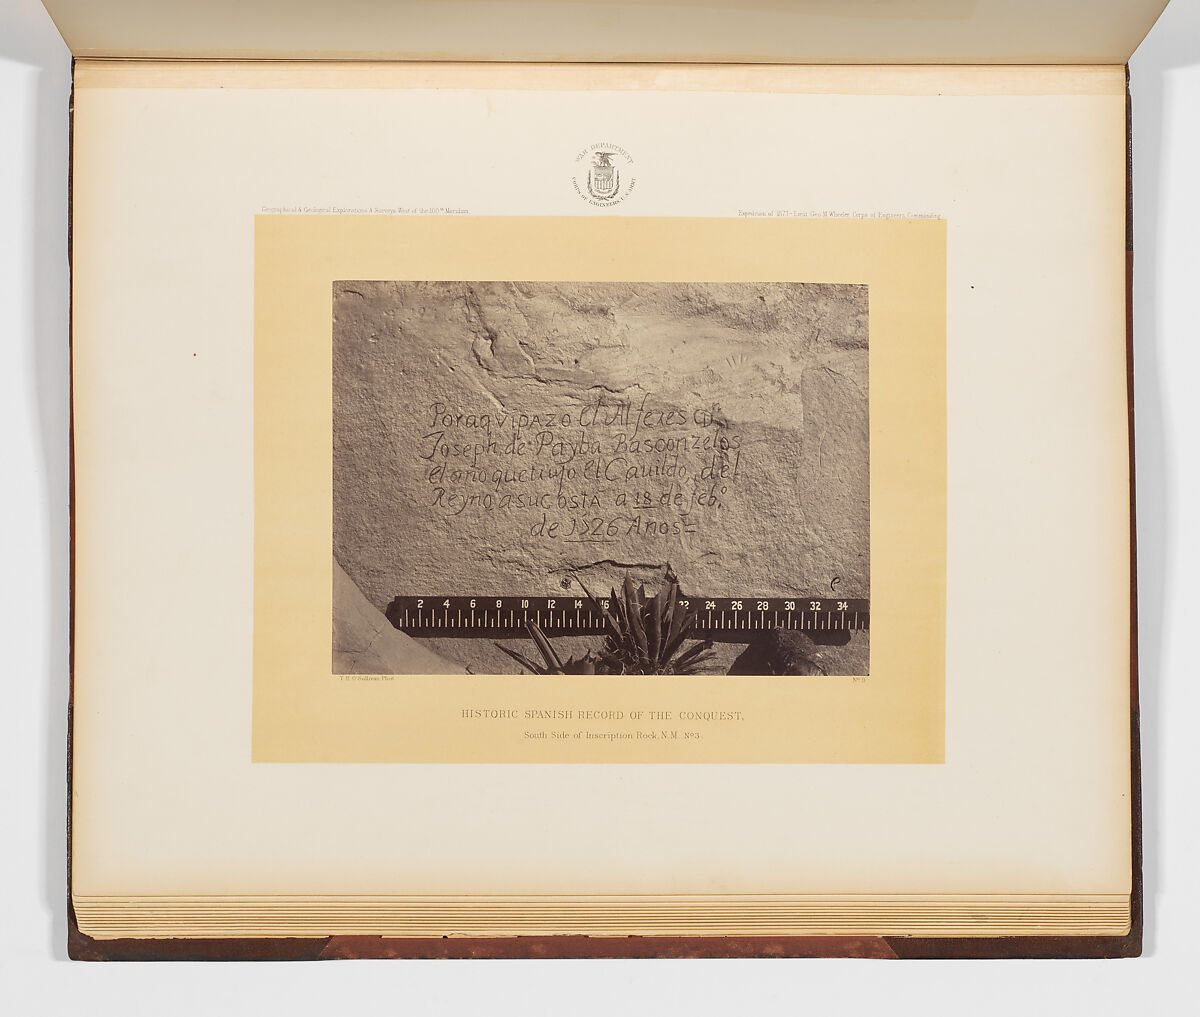 WAR DEPARTMENT
CORPS OF ENGINEERS, U.S. ARMY
Geographical & Geological Explorations & Surveys West of the 100th Meridian.
Expedition of 1873 - Lieut. Geo. M. Wheeler, Corps of Engineers, Commanding.
Por aqvi pazo el Alferes Dn
Joseph de Payba Basconzelos
el año que trujo el Cauildo del
Reyno a su costa a 18 de febo
de 1726 Años
2 4 6 8 10 12 14 16 22 24 26 28 30 32 34
T. H. O'Sullivan, Phot.
No. 9
HISTORIC SPANISH RECORD OF THE CONQUEST,
South Side of Inscription Rock, N.M. No 3.